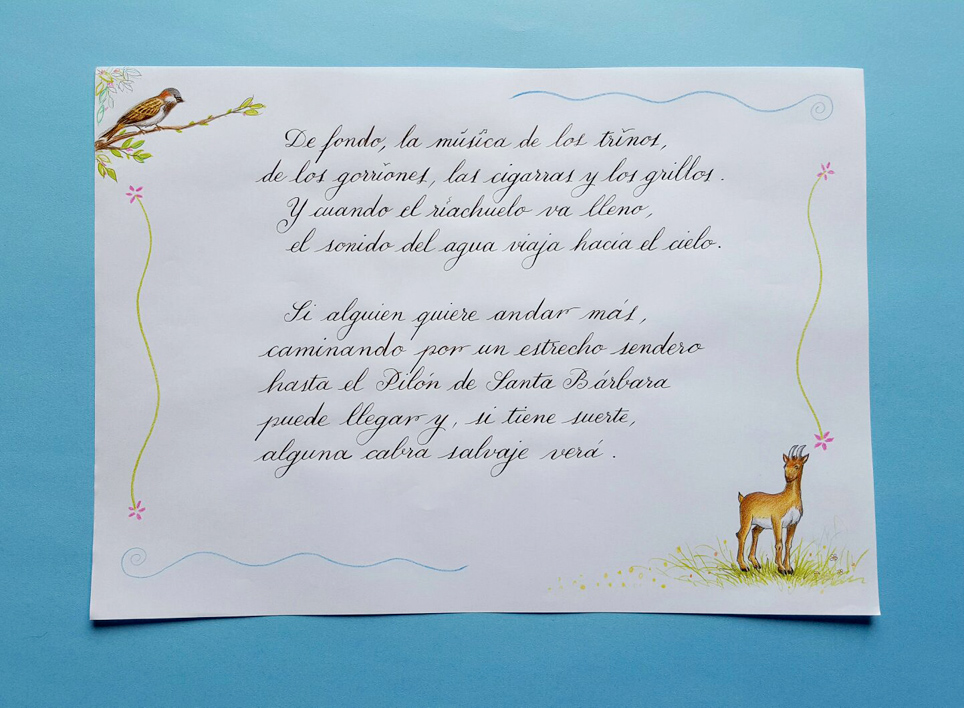 De fondo, la música de los trinos,
de los gorriones, las cigarras y los grillos.
Y cuando el riachuelo va lleno,
el sonido del agua viaja hacia el cielo.
Si alguien quiere andar más,
caminando por un estrecho sendero
hasta el Pilón de Santa Bárbara
puede llegar y, si tiene suerte,
alguna cabra salvaje verá.